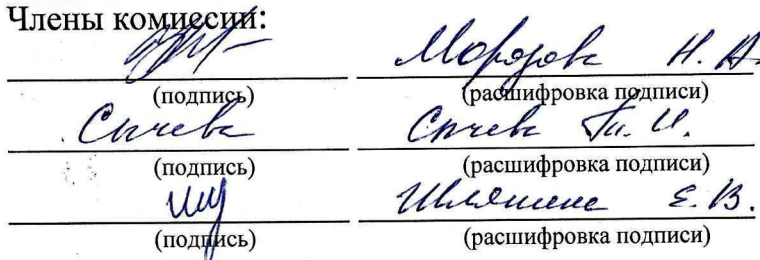 Члены комиссии:
Морозова Н. А.
(подпись) (расшифровка подписи)
Сычева Сычева Т. И.
(подпись) (расшифровка подписи)
Е. В.
(подпись) (расшифровка подписи)